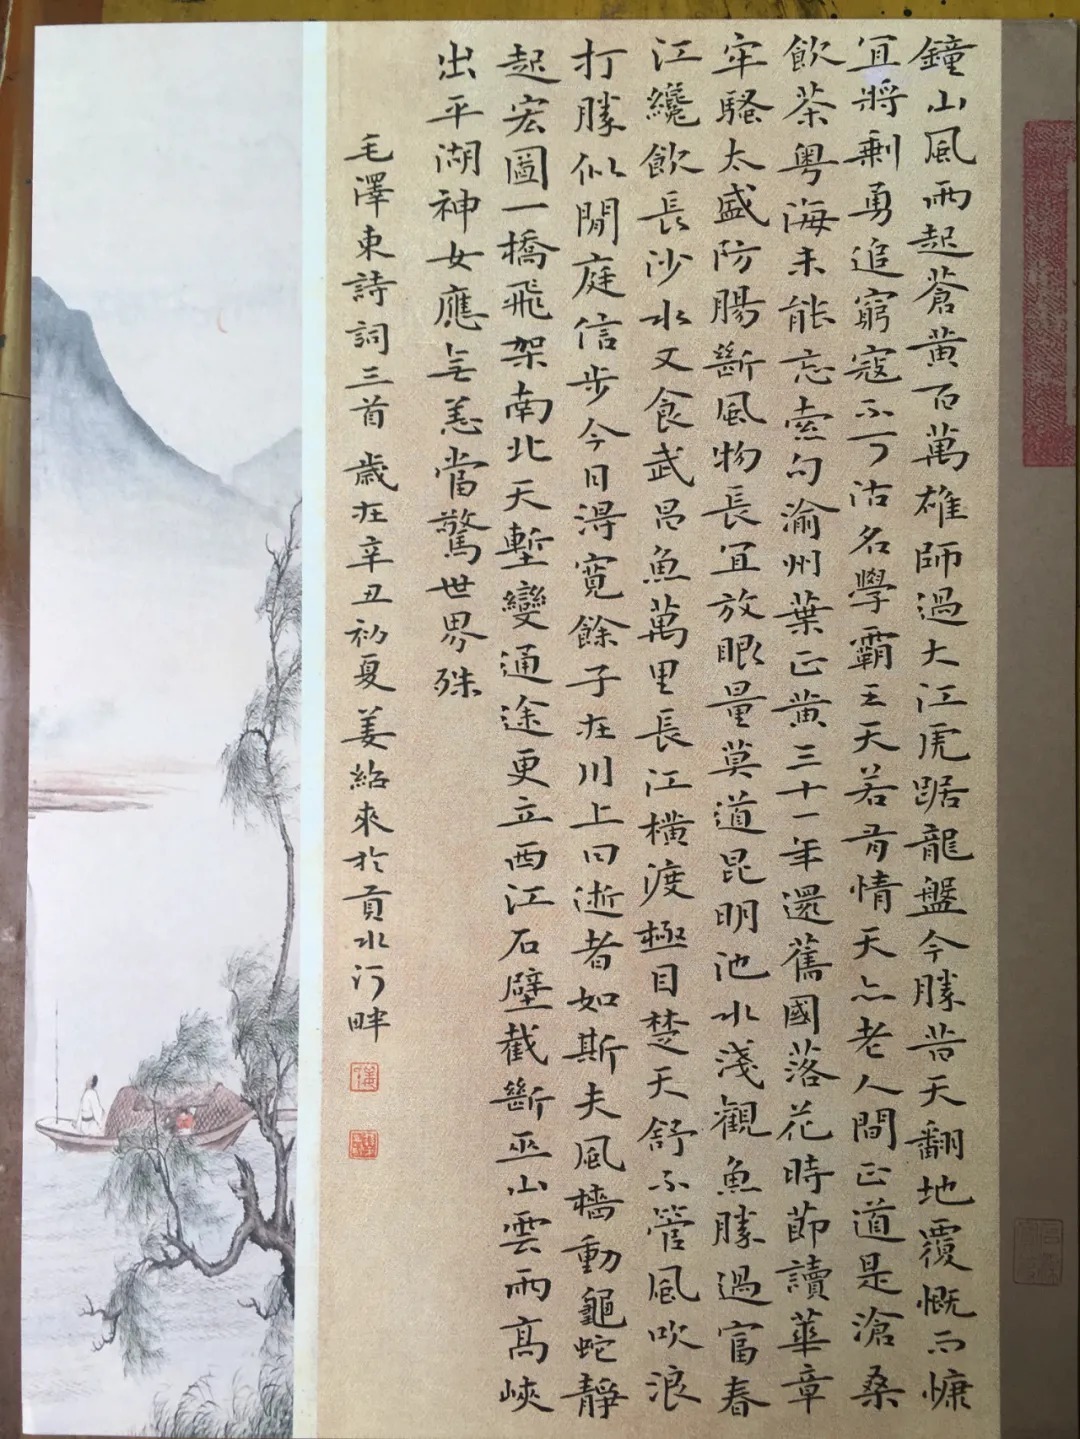 鐘山風雨起蒼黄百萬雄師過大江虎踞龍盤今勝昔天翻地覆慨而慷
宜將剩勇追窮寇不可沽名學霸王天若有情天亦老人間正道是滄桑
飲茶粤海未能忘索句渝州葉正黄三十一年還舊國落花時節讀華章
牢騷太盛防腸斷風物長宜放眼量莫道昆明池水淺觀魚勝過富春
江纔飲長沙水又食武昌魚萬里長江橫渡極目楚天舒不管風吹浪
打勝似閒庭信步今日得寬餘子在川上曰逝者如斯夫風檣動龜蛇靜
起宏圖一橋飛架南北天塹變通途更立西江石壁截斷巫山雲雨高峽
出平湖神女應無恙當驚世界殊
毛澤東詩詞三首歲在辛丑初夏姜紹來於貢水河畔